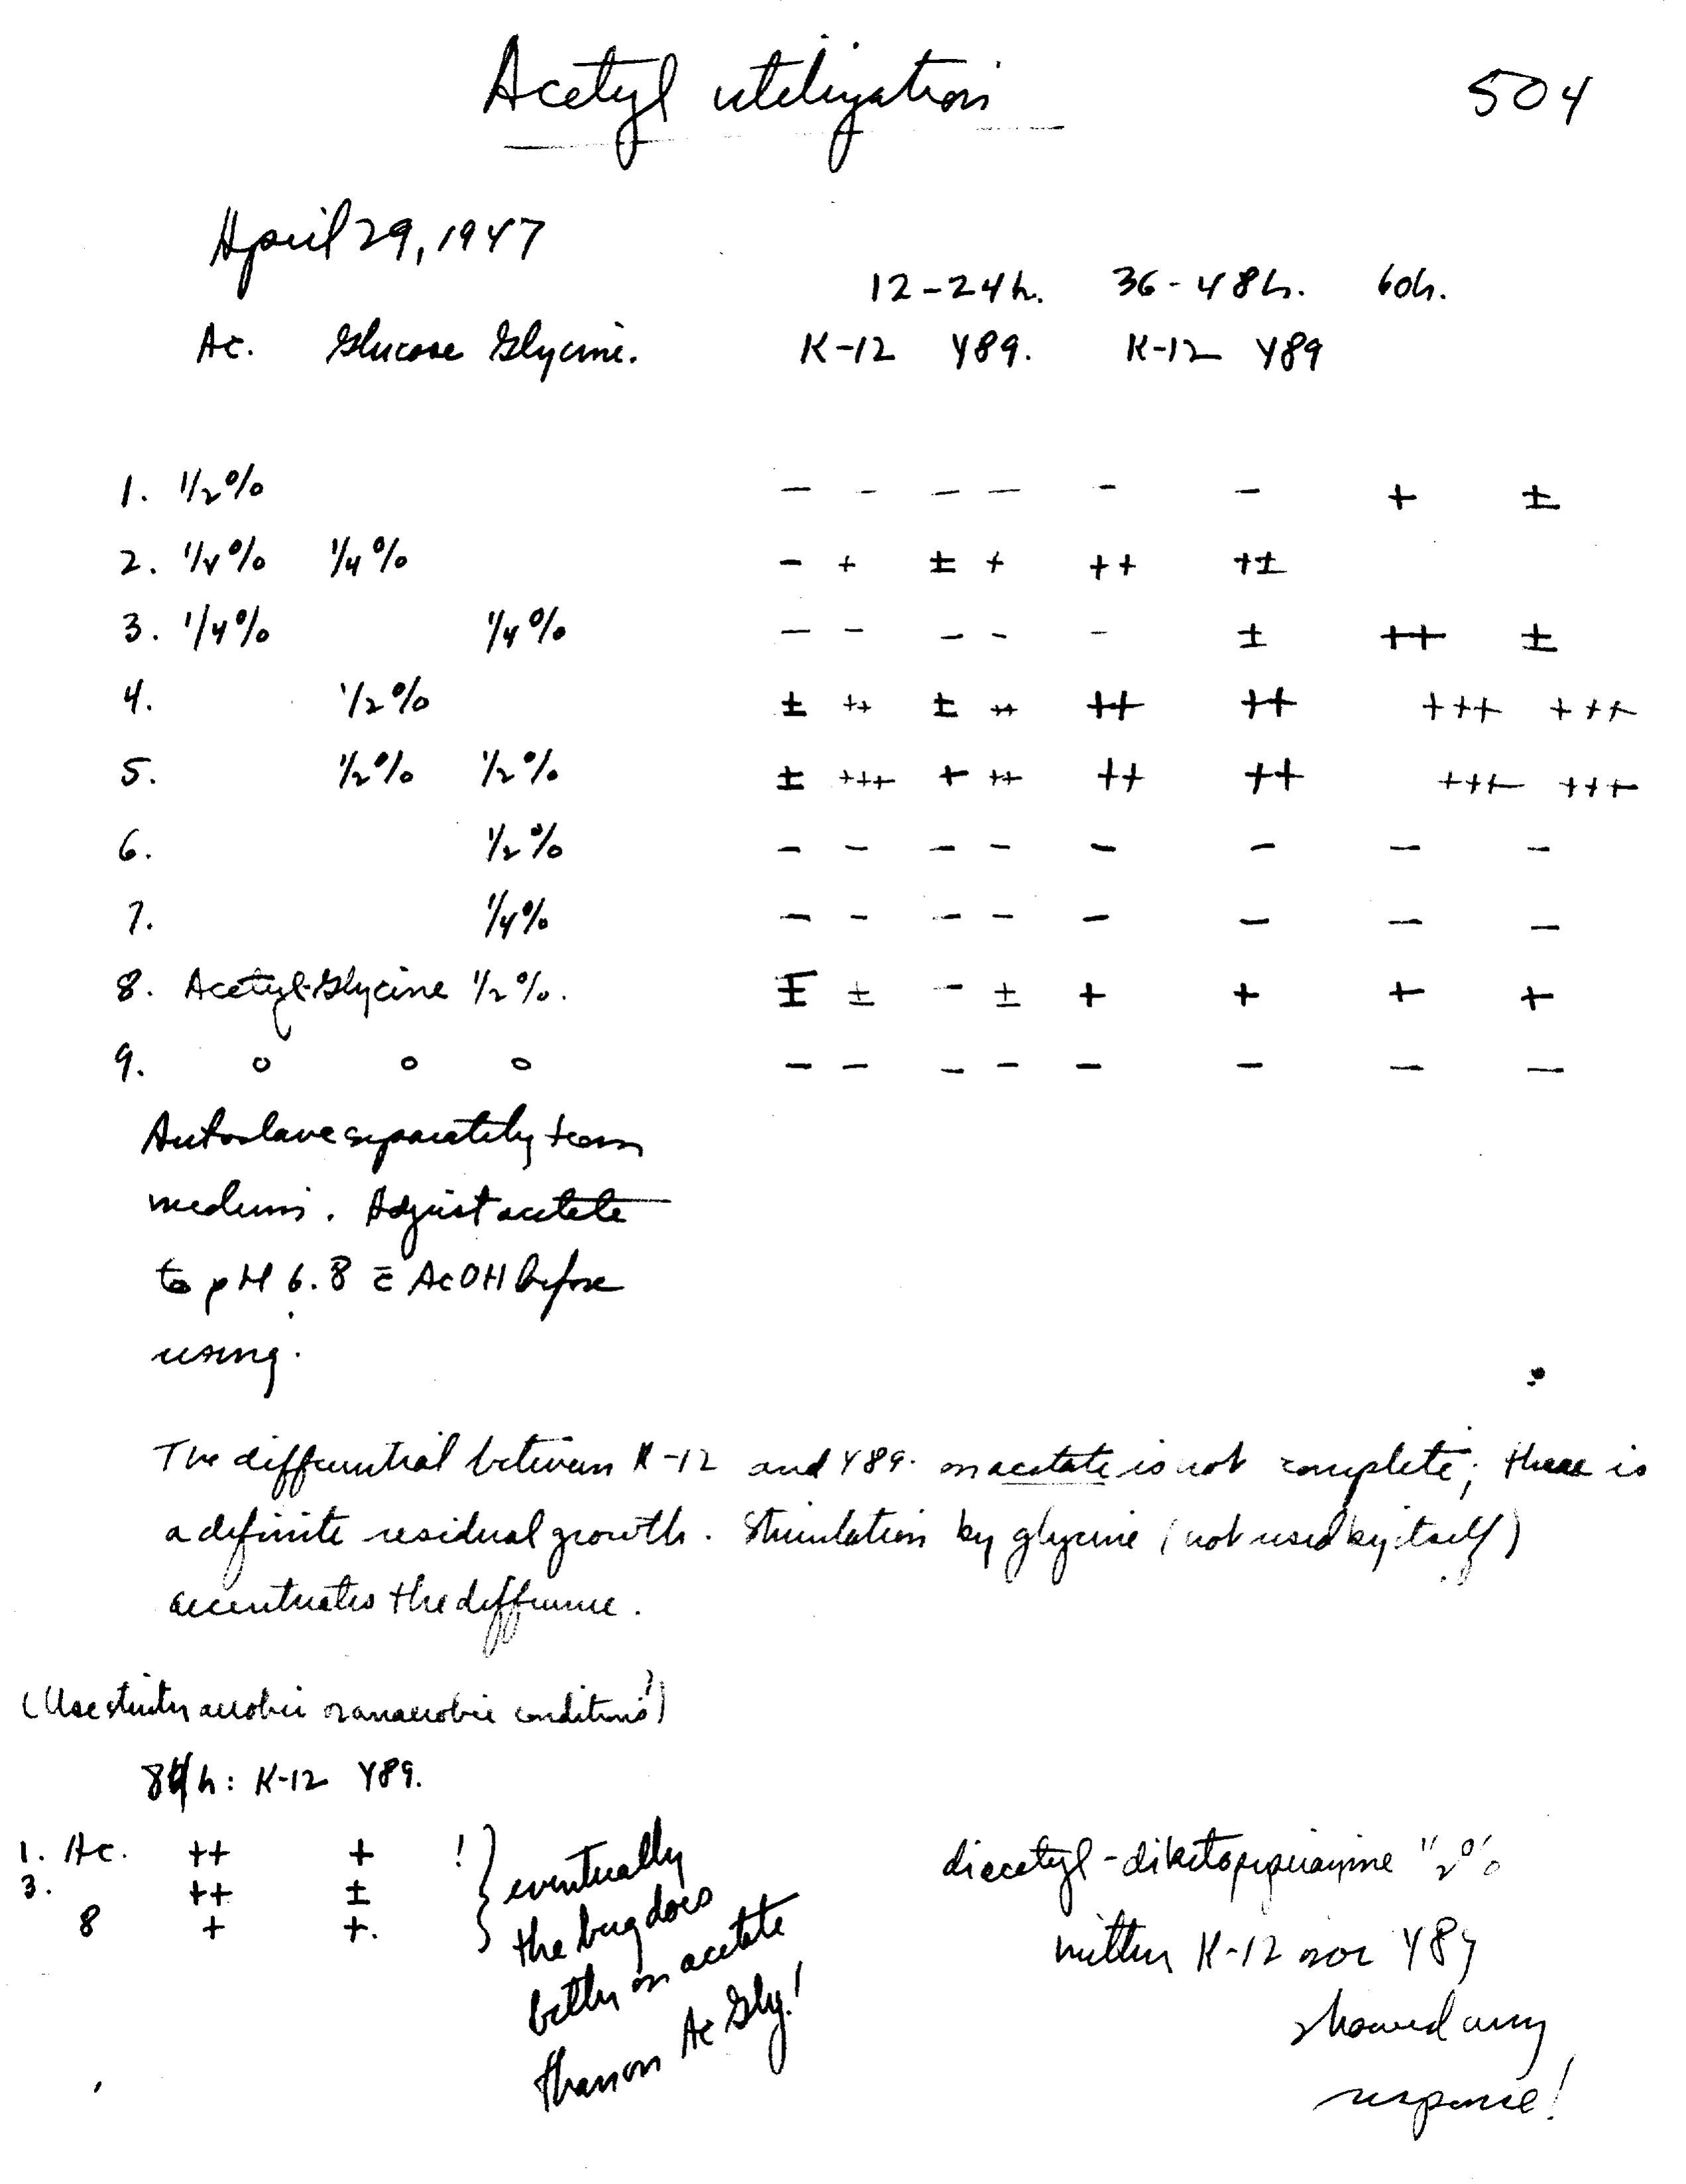 Acetyl utilization 504
April 29, 1947
12-24h. 36-48h. 60h.
Ac. Glucose Glycine. K-12 Y89. K-12 Y89
1. 1/2% - - - - - - + ±
2. 1/4% 1/4% - + ± + ++ +±
3. 1/4% 1/4% - - - - - ± ++ ±
4. 1/2% ± ++ ± ++ ++ ++ +++ +++
5. 1/2% 1/2% ± +++ + ++ ++ ++ +++ +++
6. 1/2% - - - - - - - -
7. 1/4% - - - - - - - -
8. Acetyl-Glycine 1/2%. ± ± - ± + + + +
9. o o o - - - - - - - -
Autoclave separately from
medium. Adjust acetate
to pH 6.8 c̄ AcOH before
using.
The differential between K-12 and Y89. on acetate is not complete; there is
a definite residual growth. Stimulation by glycine (not used by itself)
accentuates the difference.
(Use strictly aerobic or anaerobic conditions?)
h: K-12 Y89.
1. Ac. ++ + !
3. ++ ±
8 + +.
eventually
the bug does
better on acetate
than on Ac Gly!
diacetyl-diketopiperazine 1/2%
neither K-12 nor Y89
showed any
response!